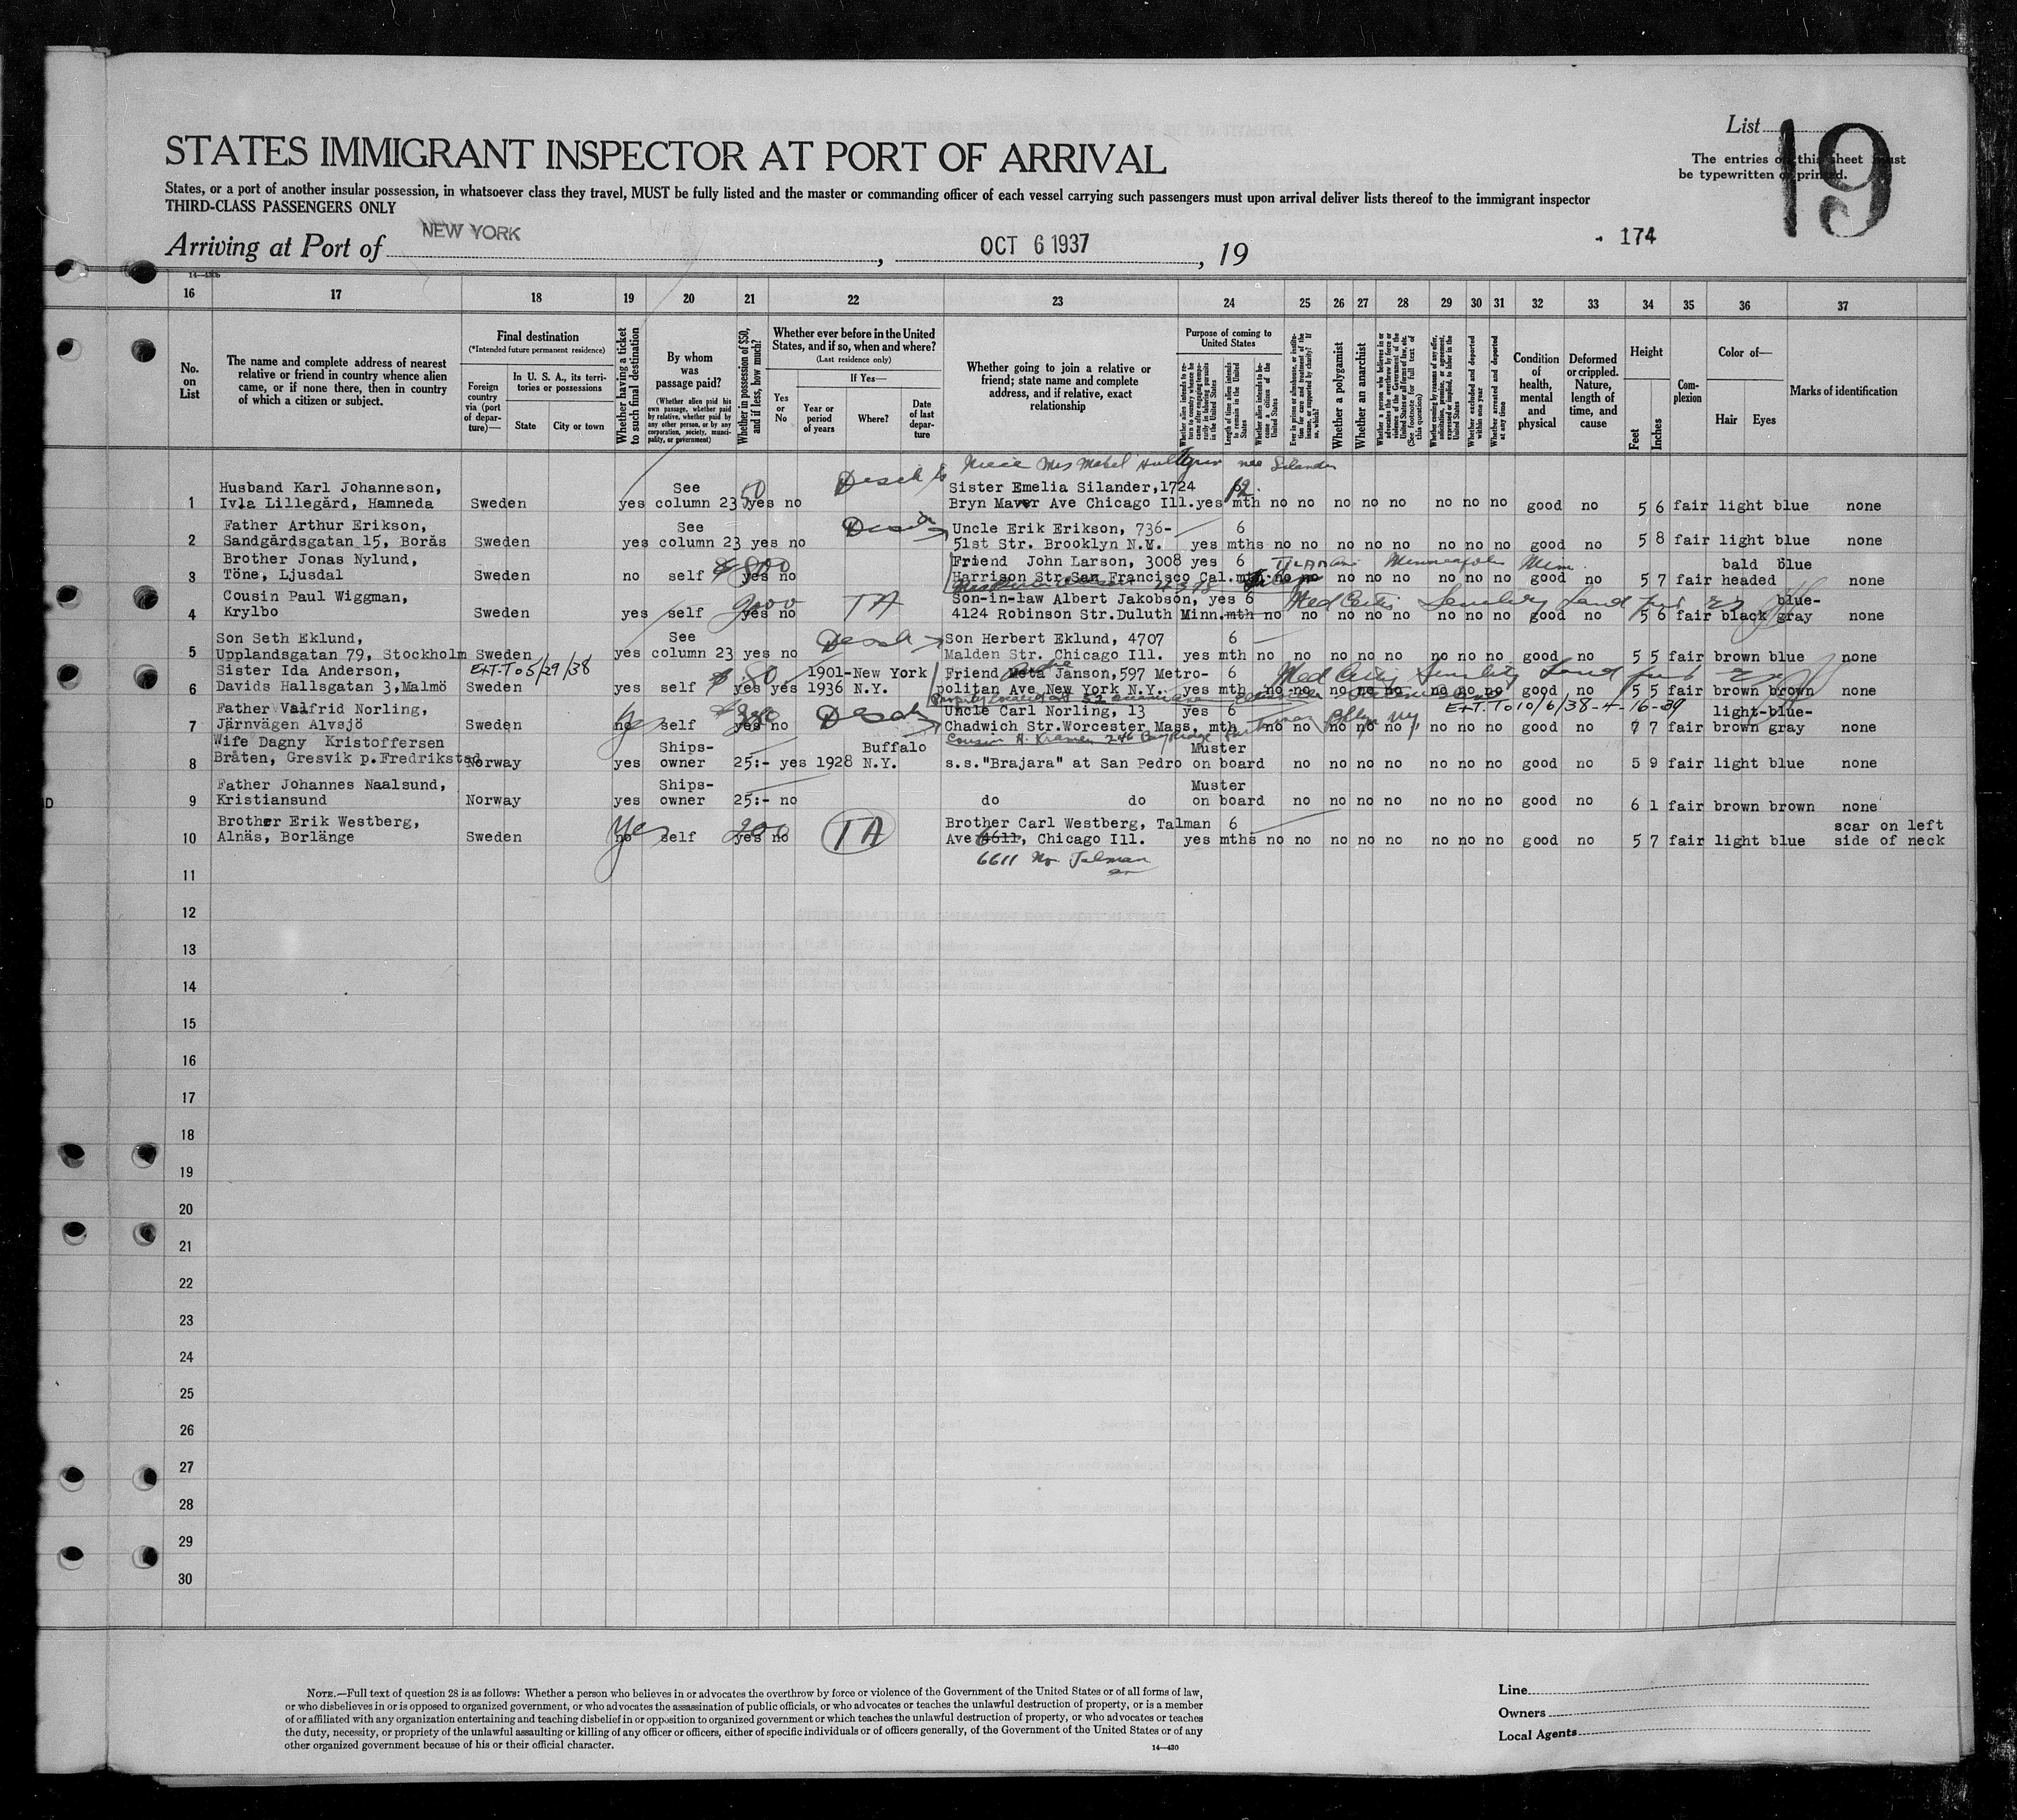 List
19
The entries on this sheet must
be typewritten or printed.
STATES IMMIGRANT INSPECTOR AT PORT OF ARRIVAL
States, or a port of another insular possession, in whatsoever class they travel, MUST be fully listed and the master or commanding officer of each vessel carrying such passengers must upon arrival deliver lists thereof to the immigrant inspector
THIRD-CLASS PASSENGERS ONLY
Arriving at Port of NEW YORK, OCT 6 1937, 19
174
14—430b
16 17 18 19 20 21 22 23 24 25 26 27 28 29 30 31 32 33 34 35 36 37
No. on List
The name and complete address of nearest relative or friend in country whence alien came, or if none there, then in country of which a citizen or subject.
Final destination
(*Intended future permanent residence)
Foreign country via (port of departure)—
In U. S. A., its territories or possessions
State
City or town
Whether having a ticket to such final destination
By whom was passage paid?
(Whether alien paid his own passage, whether paid by relative, whether paid by any other person, or by any corporation, society, municipality, or government)
Whether in possession of $50, and if less, how much?
Whether ever before in the United States, and if so, when and where?
(Last residence only)
Yes or No
If Yes—
Year or period of years
Where?
Date of last departure
Whether going to join a relative or friend; state name and complete address, and if relative, exact relationship
Purpose of coming to United States
Whether alien intends to return to country whence he came after engaging temporarily in laboring pursuits in the United States
Length of time alien intends to remain in the United States
Whether alien intends to become a citizen of the United States
Ever in prison or almshouse, or institution for care and treatment of the insane, or supported by charity? If so, which?
Whether a polygamist
Whether an anarchist
Whether a person who believes in or advocates the overthrow by force or violence of the Government of the United States or all forms of law, etc. (See footnote for full text of this question)
Whether coming by reasons of any offer, solicitation, promise, or agreement, expressed or implied, to labor in the United States
Whether excluded and deported within one year
Whether arrested and deported at any time
Condition of health, mental and physical
Deformed or crippled. Nature, length of time, and cause
Height
Feet
Inches
Complexion
Color of—
Hair
Eyes
Marks of identification
Niece Mrs Mabel Hultgren nee Silander
Husband Karl Johanneson, See 50 Sister Emelia Silander,1724 12
1 Ivla Lillegård, Hamneda Sweden yes column 23 yes no Bryn Mawr Ave Chicago Ill. yes mth no no no no no no no no good no 5 6 fair light blue none
Father Arthur Erikson, See Uncle Erik Erikson, 736- 6
2 Sandgårdsgatan 15, Borås Sweden yes column 23 yes no 51st Str. Brooklyn N.Y. yes mths no no no no no no no no good no 5 8 fair light blue none
Brother Jonas Nylund, Friend John Larson, 3008 yes 6 Minneapolis Minn. bald blue
3 Töne, Ljusdal Sweden no self yes no Harrison Str.San Francisco Cal. mth no no no no no no no no good no 5 7 fair headed none
Cousin Paul Wiggman, TA Son-in-law Albert Jakobson, yes 6 Med Certif. Senility Land blue-
4 Krylbo Sweden yes self yes no 4124 Robinson Str.Duluth Minn. mth no no no no no no no no good no 5 6 fair black gray none
Son Seth Eklund, See Son Herbert Eklund, 4707 6
5 Upplandsgatan 79, Stockholm Sweden yes column 23 yes no Malden Str. Chicago Ill. yes mth no no no no no no no no good no 5 5 fair brown blue none
Sister Ida Anderson, EXT. To 5/29/38 50 1901-New York Friend Janson,597 Metro- 6 Med Certif. Senility Land
6 Davids Hallsgatan 3,Malmö Sweden yes self yes yes 1936 N.Y. politan Ave New York N.Y. yes mth no no no no no no no no good no 5 5 fair brown brown none
EXT. To 10/6/38-4-16-39
Father Valfrid Norling, Uncle Carl Norling, 13 yes 6 light-blue-
7 Järnvägen Alvsjö Sweden yes no self yes no Chadwich Str.Worcester Mass. mth no no no no no no no no good no 7 7 fair brown gray none
Cousin H. Kramer 246 Bay Ridge Parkway Bklyn NY
Wife Dagny Kristoffersen Ships- Buffalo Muster
8 Bråten, Gresvik p.Fredrikstad Norway yes owner 25:- yes 1928 N.Y. s.s."Brajara" at San Pedro on board no no no no no no no good no 5 9 fair light blue none
Father Johannes Naalsund, Ships- Muster
9 Kristiansund Norway yes owner 25:- no do do on board no no no no no no no good no 6 1 fair brown brown none
Brother Erik Westberg, yes 200 TA Brother Carl Westberg, Talman 6 scar on left
10 Alnäs, Borlänge Sweden no self yes no Ave 6611, Chicago Ill. yes mths no no no no no no no no good no 5 7 fair light blue side of neck
6611 No. Talman
11
12
13
14
15
16
17
18
19
20
21
22
23
24
25
26
27
28
29
30
NOTE.—Full text of question 28 is as follows: Whether a person who believes in or advocates the overthrow by force or violence of the Government of the United States or of all forms of law,
or who disbelieves in or is opposed to organized government, or who advocates the assassination of public officials, or who advocates or teaches the unlawful destruction of property, or is a member
of or affiliated with any organization entertaining and teaching disbelief in or opposition to organized government or which teaches the unlawful destruction of property, or who advocates or teaches
the duty, necessity, or propriety of the unlawful assaulting or killing of any officer or officers, either of specific individuals or of officers generally, of the Government of the United States or of any
other organized government because of his or their official character.
14—430
Line
Owners
Local Agents